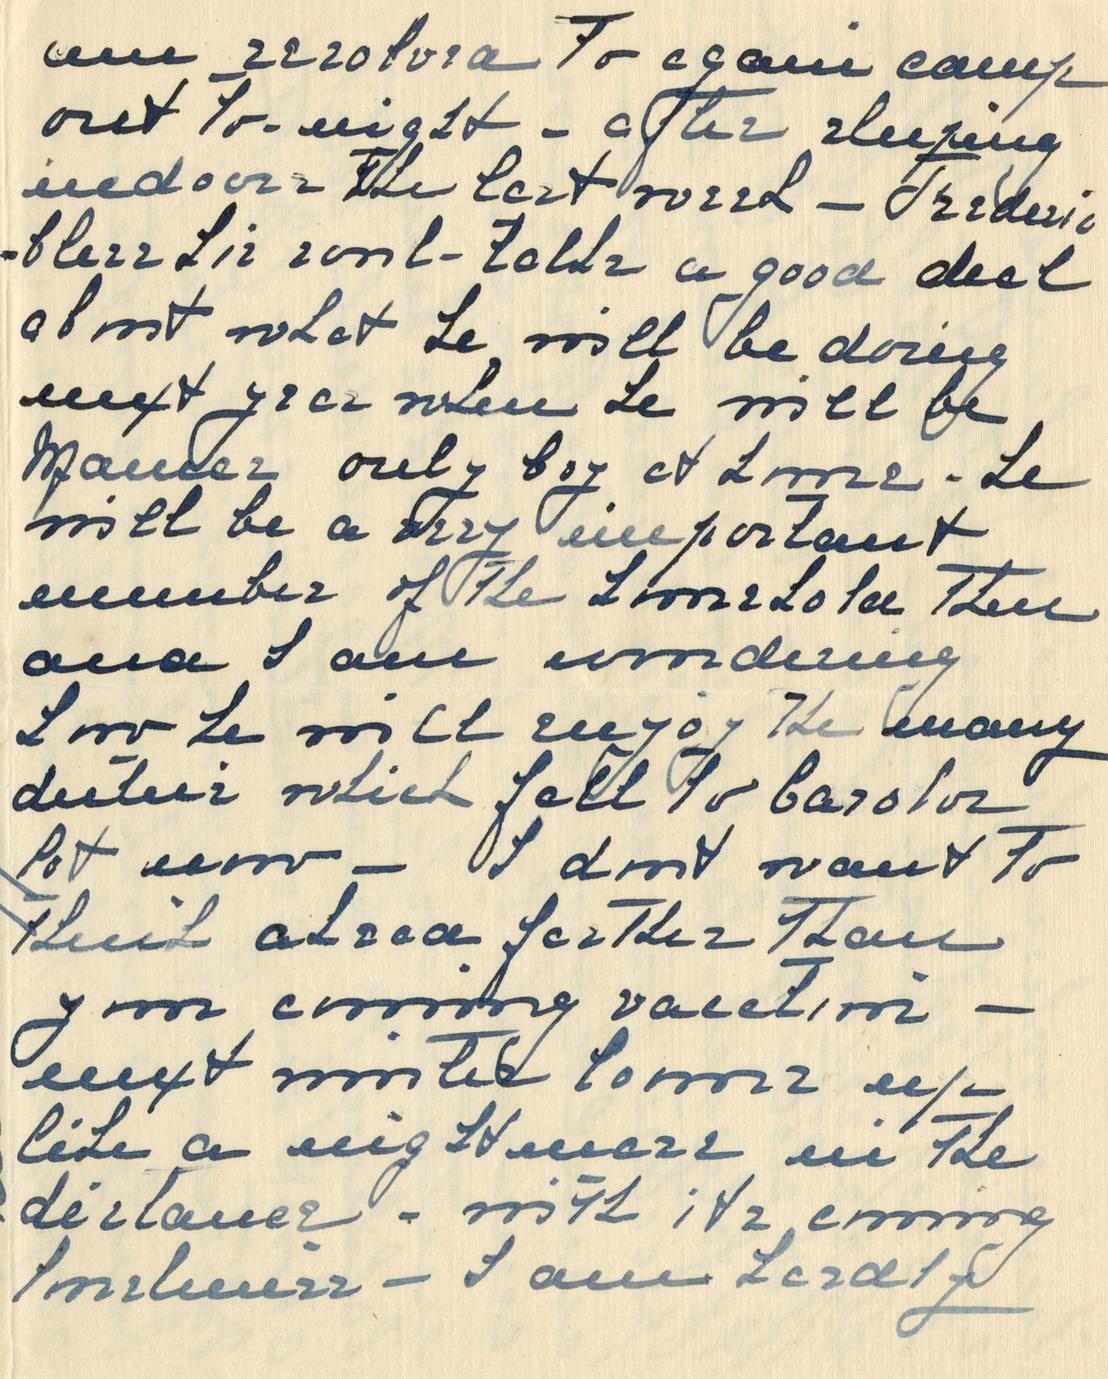 am resolved to again camp
out to-night - after sleeping
indoors the last week - Frederic
-bless his soul - talks a good deal
about what he will be doing
next year when he will be
Mances only boy at home - he
will be a very important
member of the household then
and I am wondering
how he will enjoy the many
duties which fall to
lot now - I dont want to
think ahead farther than
your coming vacation -
next winter looms up
like a nightmare in the
distance - with its coming
loneliness - I am hardly